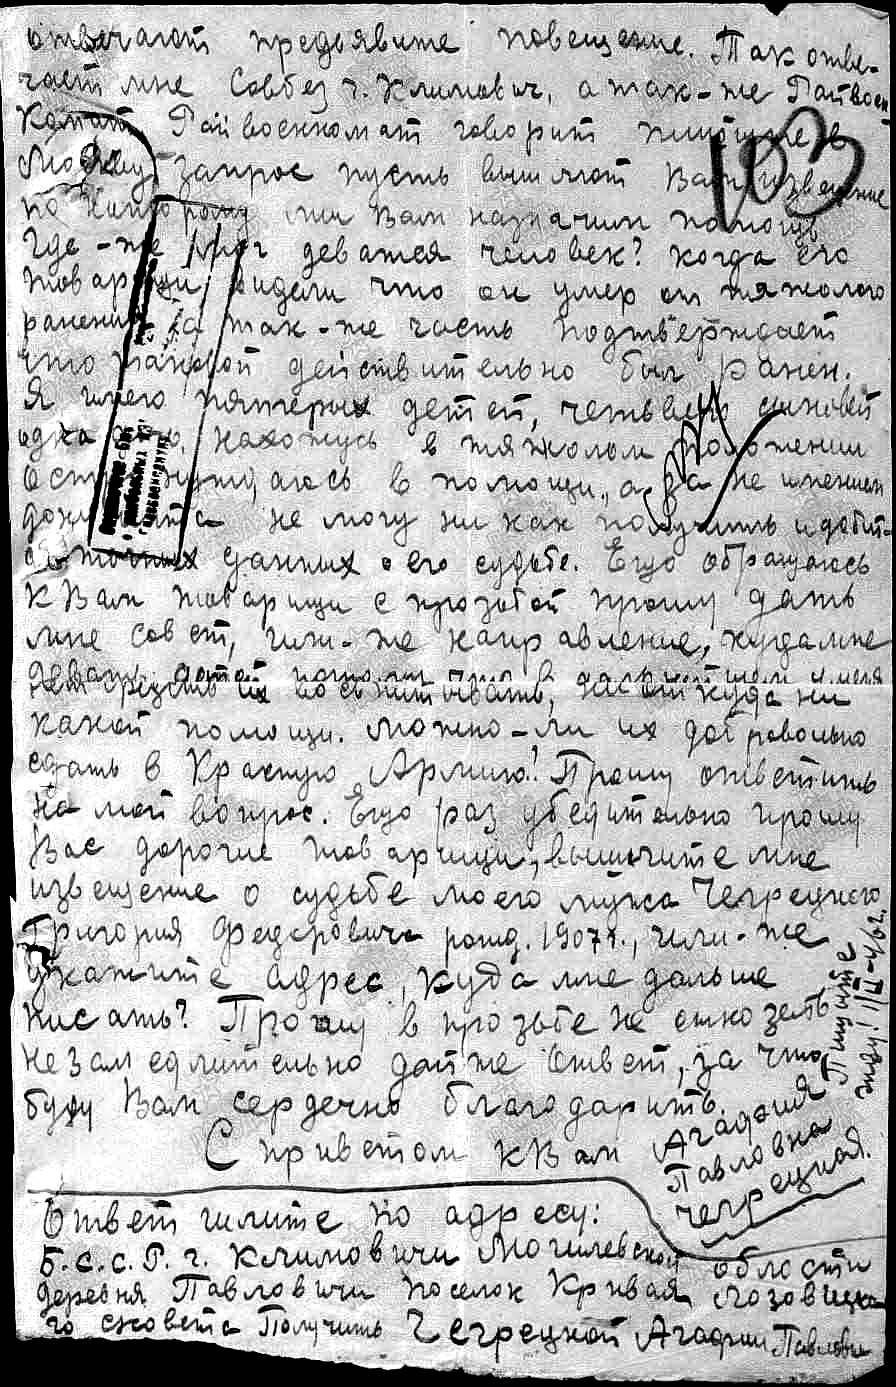 отвечают предьявите повещение. Так отве-
чает мне Совбез г. Климович, а так-же Райвоен
Комат Райвоенкомат говорит пишите в
Москву запрос пусть вышлют Вам извещение
по которому мы Вам назначим помощь
Где-же мог деватся человек? когда его
товарищи видели что он умер от тяжолого
ранения а так-же часть подтверждает
что таковой действительно был ранен.
Я имею пятерых детей, четверо сыновей
одна дочь, нахожусь в тяжолом положении
Остро нуждаюсь в помощи, а за не имением
документа не могу ни как получить и добит-
ся точных данных о его судьбе. Ещо обращаюсь
к Вам товарищи с прозьбой прошу дать
мне совет, или-же направление, куда мне
девать детей потому что в дальнейшем у меня
их воспитывать, ни откуда ни
какой помощи. Можно-ли их добровольно
сдать в Красную Армию? Прошу ответить
на мой вопрос. Ещо раз убедительно прошу
Вас дорогие товарищи, вышлите мне
извещение о судьбе моего мужа Чегрецкого
Григория Федоровича рожд. 1907г., или-же
укажите адрес, куда мне дальше
писать? Прошу в прозьбе не отказать
незамедлительно дайте ответ, за что
буду Вам сердечно благодарить.
С приветом к Вам Агафия
Павловна
Чегрецкая.
Пишите
жду! 1/III-46г.
103
Ответ шлите по адресу:
Б.С.С.Р. г. Климовичи Могилевской области
деревня Павловичи поселок Кривая Лозовицко
го сковета Получить Чегрецкой Агафии Павловне